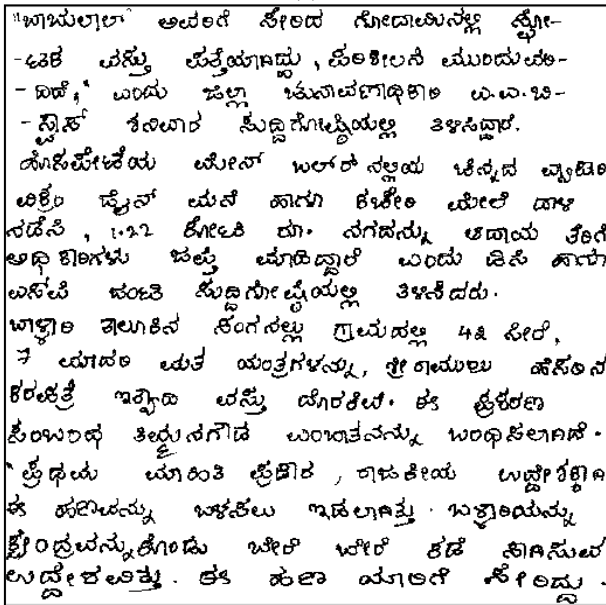 "ಬಾಬುಲಾಲ್" ಅವರಿಗೆ ಸೇರಿದ ಗೋದಾಮಿನಲ್ಲಿ ಸ್ಫೋ-
-ಟಕ ವಸ್ತು ಪತ್ತೆಯಾಗಿದ್ದು, ಪರಿಶೀಲನೆ ಮುಂದುವರಿ-
-ದಿದೆ," ಎಂದು ಜಿಲ್ಲಾ ಚುನಾವಣಾಧಿಕಾರಿ ಎ.ಎ.ಬಿ-
-ಸ್ವಾಸ್ ಶನಿವಾರ ಸುದ್ದಿಗೋಷ್ಠಿಯಲ್ಲಿ ತಿಳಿಸಿದ್ದಾರೆ.
ಹೊಸಪೇಟೆಯ ಮೇನ್ ಬಜಾರ್ ನಲ್ಲಿಯ ಚಿನ್ನದ ವ್ಯಾಪಾರಿ
ವಿಕ್ರಂ ಜೈನ್ ಮನೆ ಹಾಗೂ ಕಚೇರಿ ಮೇಲೆ ದಾಳಿ
ನಡೆಸಿ, 1.22 ಕೋಟಿ ರೂ. ನಗದನ್ನು ಆದಾಯ ತೆರಿಗೆ
ಅಧಿಕಾರಿಗಳು ಜಪ್ತಿ ಮಾಡಿದ್ದಾರೆ ಎಂದು ಡಿಸಿ ಹಾಗೂ
ಎಸ್ಪಿ ಜಂಟಿ ಸುದ್ದಿಗೋಷ್ಠಿಯಲ್ಲಿ ತಿಳಿಸಿದರು.
ಬಳ್ಳಾರಿ ತಾಲೂಕಿನ ಸಂಗನಕಲ್ಲು ಗ್ರಾಮದಲ್ಲಿ 43 ಸೀರೆ,
7 ಮಾದರಿ ಮತ ಯಂತ್ರಗಳನ್ನು, ಶ್ರೀರಾಮುಲು ಹೆಸರಿನ
ಕರಪತ್ರ ಇತ್ಯಾದಿ ವಸ್ತು ದೊರಕಿವೆ. ಈ ಪ್ರಕರಣ
ಸಂಬಂಧ ತಿಮ್ಮನಗೌಡ ಎಂಬಾತನನ್ನು ಬಂಧಿಸಲಾಗಿದೆ.
"ಪ್ರಥಮ ಮಾಹಿತಿ ಪ್ರಕಾರ, ರಾಜಕೀಯ ಉದ್ದೇಶಕ್ಕಾಗಿ
ಈ ಹಣವನ್ನು ಬಳಸಲು ಇಡಲಾಗಿತ್ತು. ಬಳ್ಳಾರಿಯನ್ನು
ಕೇಂದ್ರವನ್ನುಕೊಂಡು ಬೇರೆ ಬೇರೆ ಕಡೆ ಸಾಗಿಸುವ
ಉದ್ದೇಶವಿತ್ತು. ಈ ಹಣ ಯಾರಿಗೆ ಸೇರಿದ್ದು.